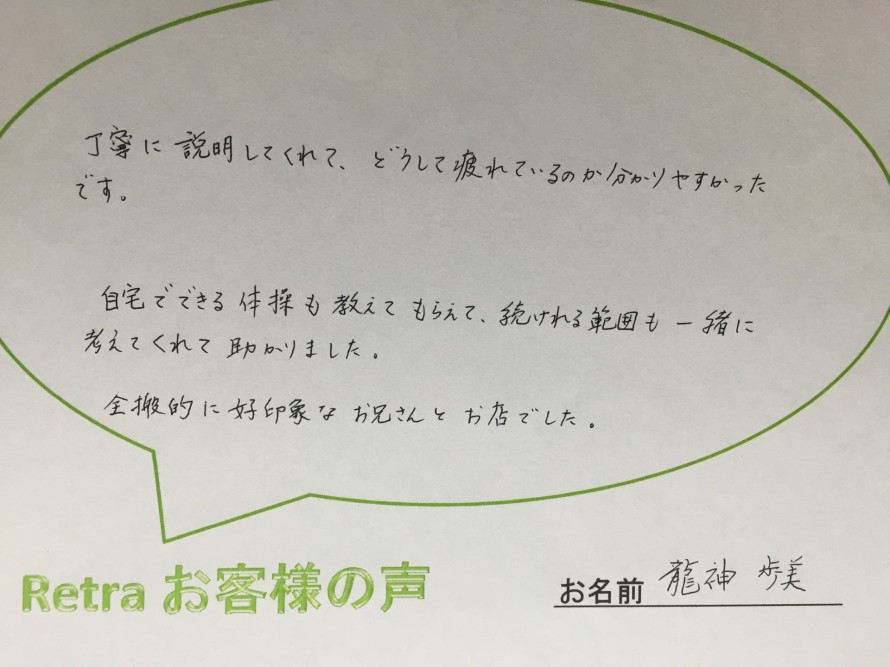 丁寧に説明してくれて、どうして疲れているのか分かりやすかった
です。
自宅でできる体操も教えてもらえて、続けれる範囲も一緒に
考えてくれて助かりました。
全搬的に好印象なお兄さんとお店でした。
Retra お客様の声
お名前 龍神 歩美